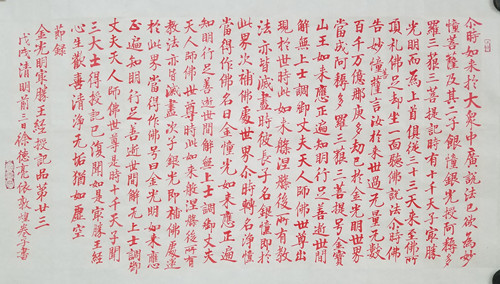 尒時如來於大眾中廣說法已欲為妙
幢菩薩及其二子銀幢銀光授阿耨多
羅三藐三菩提記時有十千天子㝡勝
光明而為上首俱從三十三天來至佛所
頂礼佛足却坐一面聽佛說法尒時佛
告妙幢菩薩言汝於來世過无量无數
百千万億那庾多劫已於金光明世界
當成阿耨多羅三藐三菩提号金寶
山王如來應正遍知明行足善逝世間
解無上士調御丈夫天人師佛世尊出
現於世時此如來般涅槃後所有教
法亦皆滅盡時彼長子名銀幢即於
此界次補佛處世界尒時轉名淨幢
當得作佛名曰金幢光如來應正遍
知明行足善逝世間解無上士調御丈夫
天人師佛世尊時此如來般涅槃後所有
教法亦皆滅盡次子銀光即補佛處還
於此界當得作佛号曰金光明如來應
正遍知明行足善逝世間解無上士調御
丈夫天人師佛世尊是時十千天子聞
三大士得授記已復聞如是㝡勝王經
心生歡喜清淨无垢猶如虛空
節錄
金光明㝡勝王經授記品第廿三
戊戌清明前三日徐德亮依敦煌卷子書